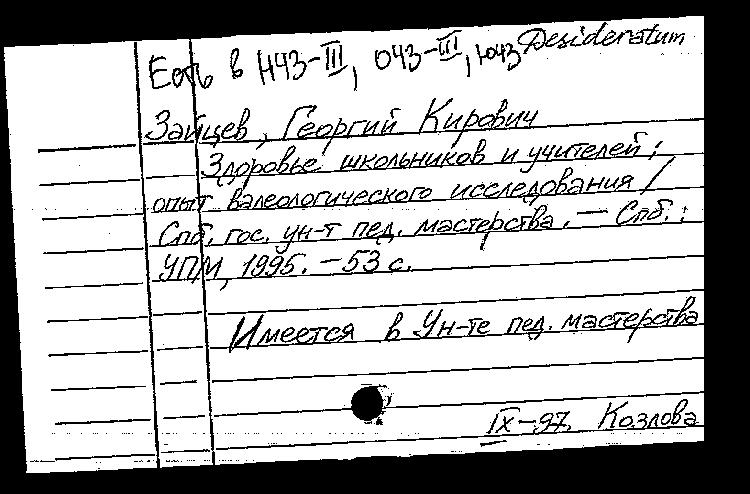 Есть в Н43-III, О43-III, Ю43 Desideratum
Зайцев, Георгий Кирович
Здоровье школьников и учителей:
опыт валеологического исследования /
Спб. гос. ун-т пед. мастерства. — Спб.:
УПМ, 1995. - 53 с.
Имеется в Ун-те пед. мастерства
IX-97. Козлова